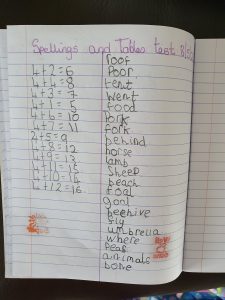 Spellings and Tables test
4+2=6
4+4=8
4+3=7
4+1=5
4+6=10
4+7=11
4+5=9
4+8=12
4+9=13
4+11=15
4+10=14
4+12=16
roof
Poor
tent
went
food
pork
fork
behind
horse
lamb
sheep
beach
foal
goal
beehive
fly
umbrella
where
animals
bone